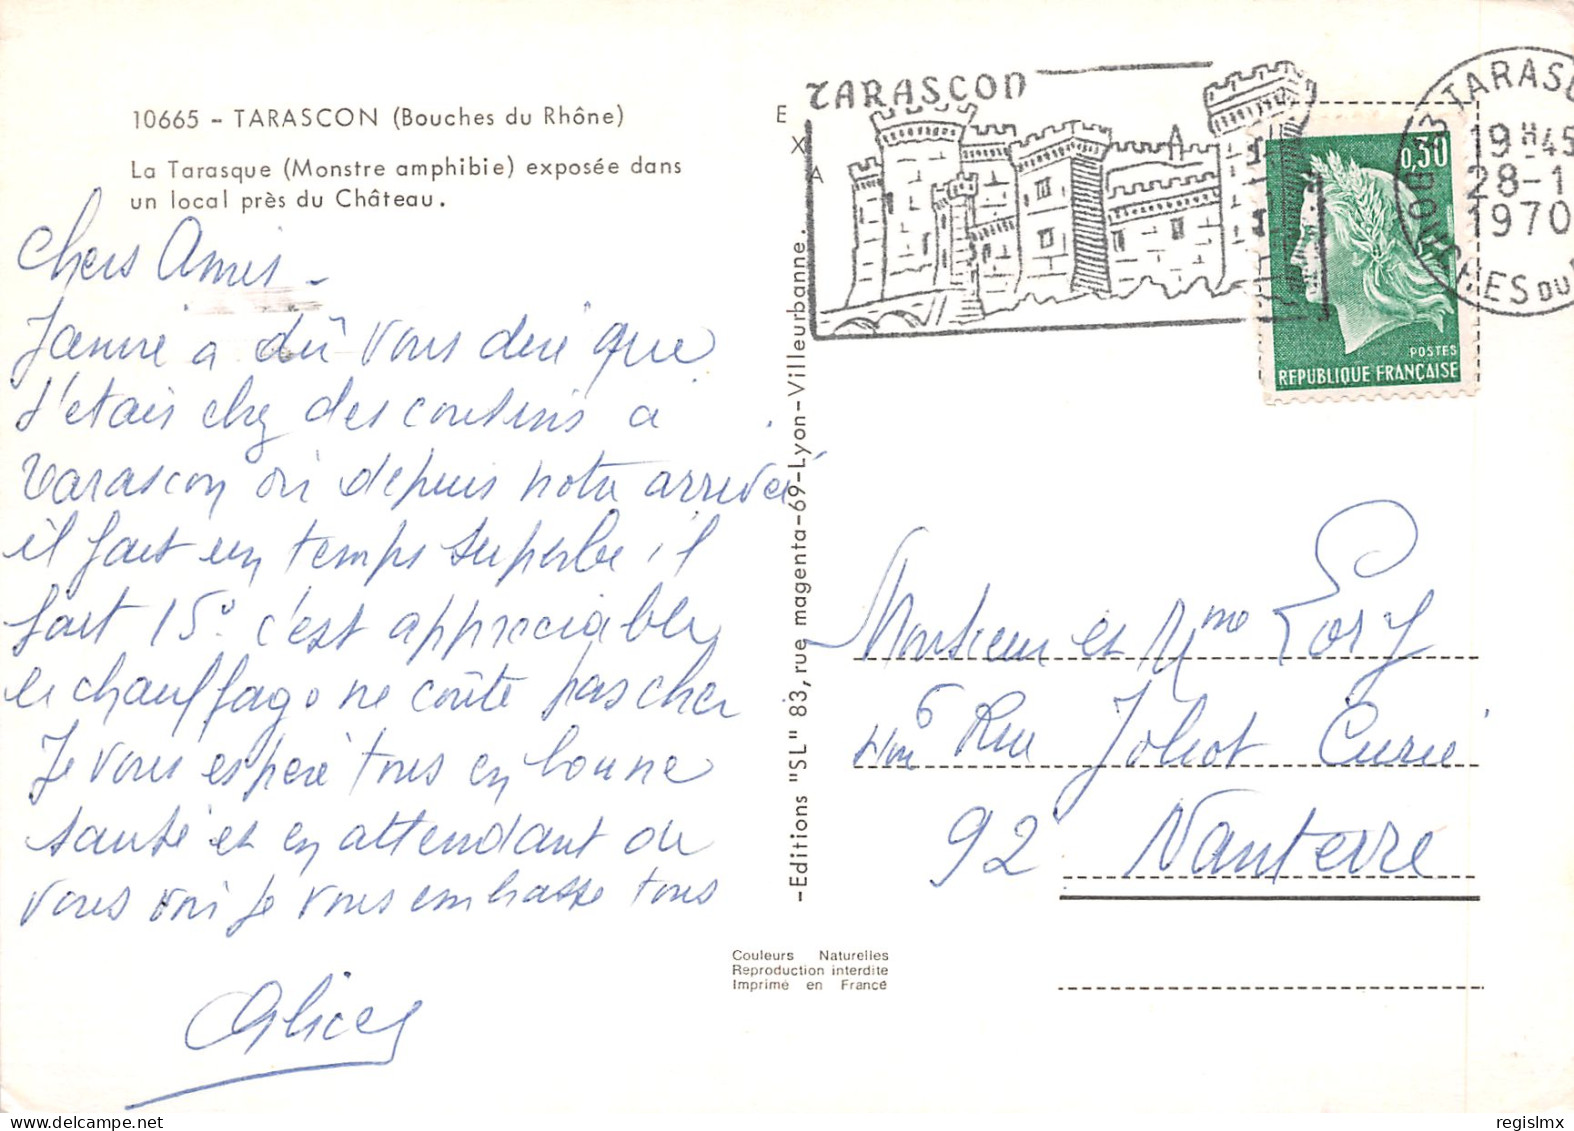 10665 - TARASCON (Bouches du Rhône)
La Tarasque (Monstre amphibie) exposée dans
un local près du Château.
Chers Amis -
a dû vous dire que
j'étais chez des cousins a
Tarascon où depuis notre arrivée
il fait un temps superbe, il
fait 15° c'est appreciable,
le chauffage ne coûte pas cher
Je vous espère tous en bonne
santé et en attendant de
vous voir je vous embrasse tous
Alice
E
X
A
-Editions "SL" 83, rue magenta-69-Lyon-Villeurbanne.
Couleurs Naturelles
Reproduction interdite
Imprimé en France
TARASCON
13 TARASC
19 H 45
28-1
1970
BOUCHES DU
0,30
POSTES
REPUBLIQUE FRANÇAISE
Monsieur et Mme Lory
6 Rue Joliot Curie
92 Nanterre
regislmx